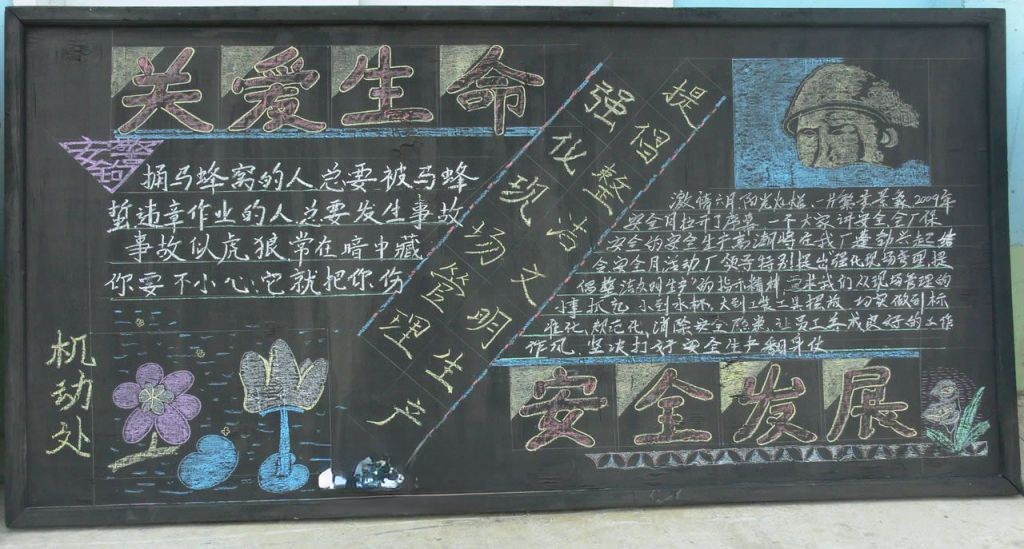 关爱生命
安
警
钟
捅马蜂窝的人总要被马蜂
蜇违章作业的人总要发生事故
事故似虎狼常在暗中藏
你要不小心它就把你伤
机动处
强化现场管理
提倡整洁文明生产
激情六月阳光灿烂,一片繁荣景象2009年
安全月拉开了序幕,一个大家讲安全会广促
安全的安全生产高潮将在我厂蓬勃兴起结
合安全月活动厂领导特别提出强化现场管理,提
倡整洁文明生产"的指示精神,要求我们从现场管理的
小事抓起,小到水杯,大到工装工具摆放,切实做到标
准化,规范化,消除安全隐患,让员工养成良好的工作
作风,坚决打好安全生产翻身仗
安全发展